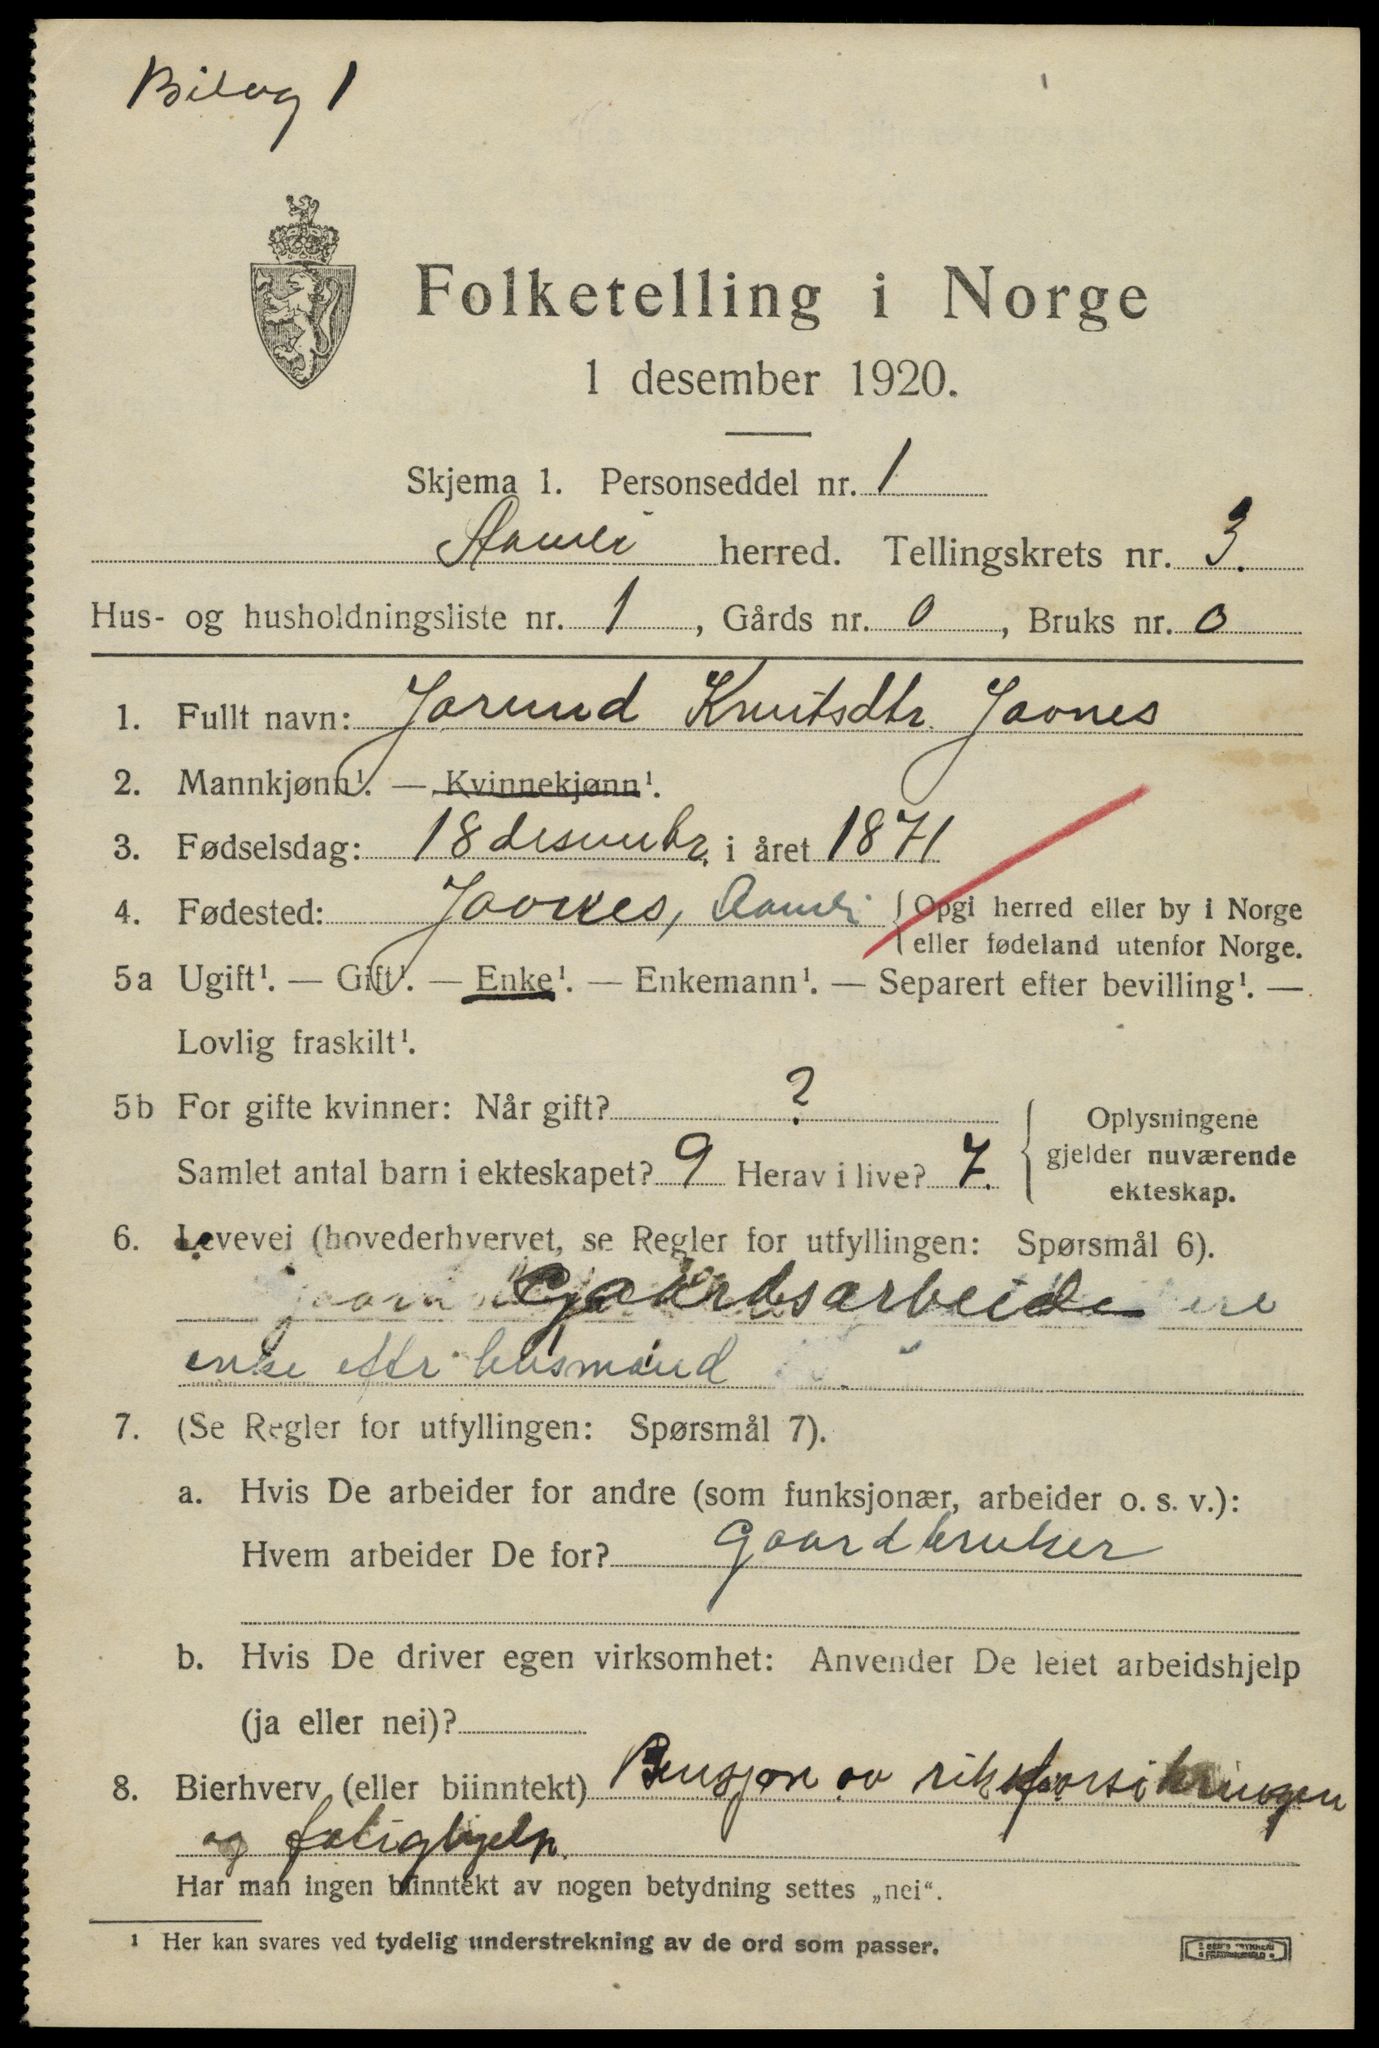 Bilag 1
Folketelling i Norge
1 desember 1920.
Skjema 1. Personseddel nr. 1
Aamli herred. Tellingskrets nr. 3.
Hus- og husholdningsliste nr. 1, Gårds nr. 0, Bruks nr. 0
1. Fullt navn: Jorund Knutsdtr. Jovnes
2. Mannkjønn¹. — Kvinnekjønn¹.
3. Fødselsdag: 18 desembr. i året 1871
4. Fødested: Jovnes, Aamli { Opgi herred eller by i Norge
eller fødeland utenfor Norge.
5a Ugift¹. — Gift¹. — Enke¹. — Enkemann¹. — Separert efter bevilling¹. —
Lovlig fraskilt¹.
5b For gifte kvinner: Når gift? ?
Samlet antal barn i ekteskapet? 9 Herav i live? 7.
Oplysningene
gjelder nuværende
ekteskap.
6. Levevei (hovederhvervet, se Regler for utfyllingen: Spørsmål 6).
Gaardsarbeide
enke eftr husmand
7. (Se Regler for utfyllingen: Spørsmål 7).
a. Hvis De arbeider for andre (som funksjonær, arbeider o. s. v.):
Hvem arbeider De for? gaardbruker
b. Hvis De driver egen virksomhet: Anvender De leiet arbeidshjelp
(ja eller nei)?
8. Bierhverv (eller biinntekt) Pensjon av riksforsikringen
og fatighjelp.
Har man ingen biinntekt av nogen betydning settes „nei“.
¹ Her kan svares ved tydelig understrekning av de ord som passer.